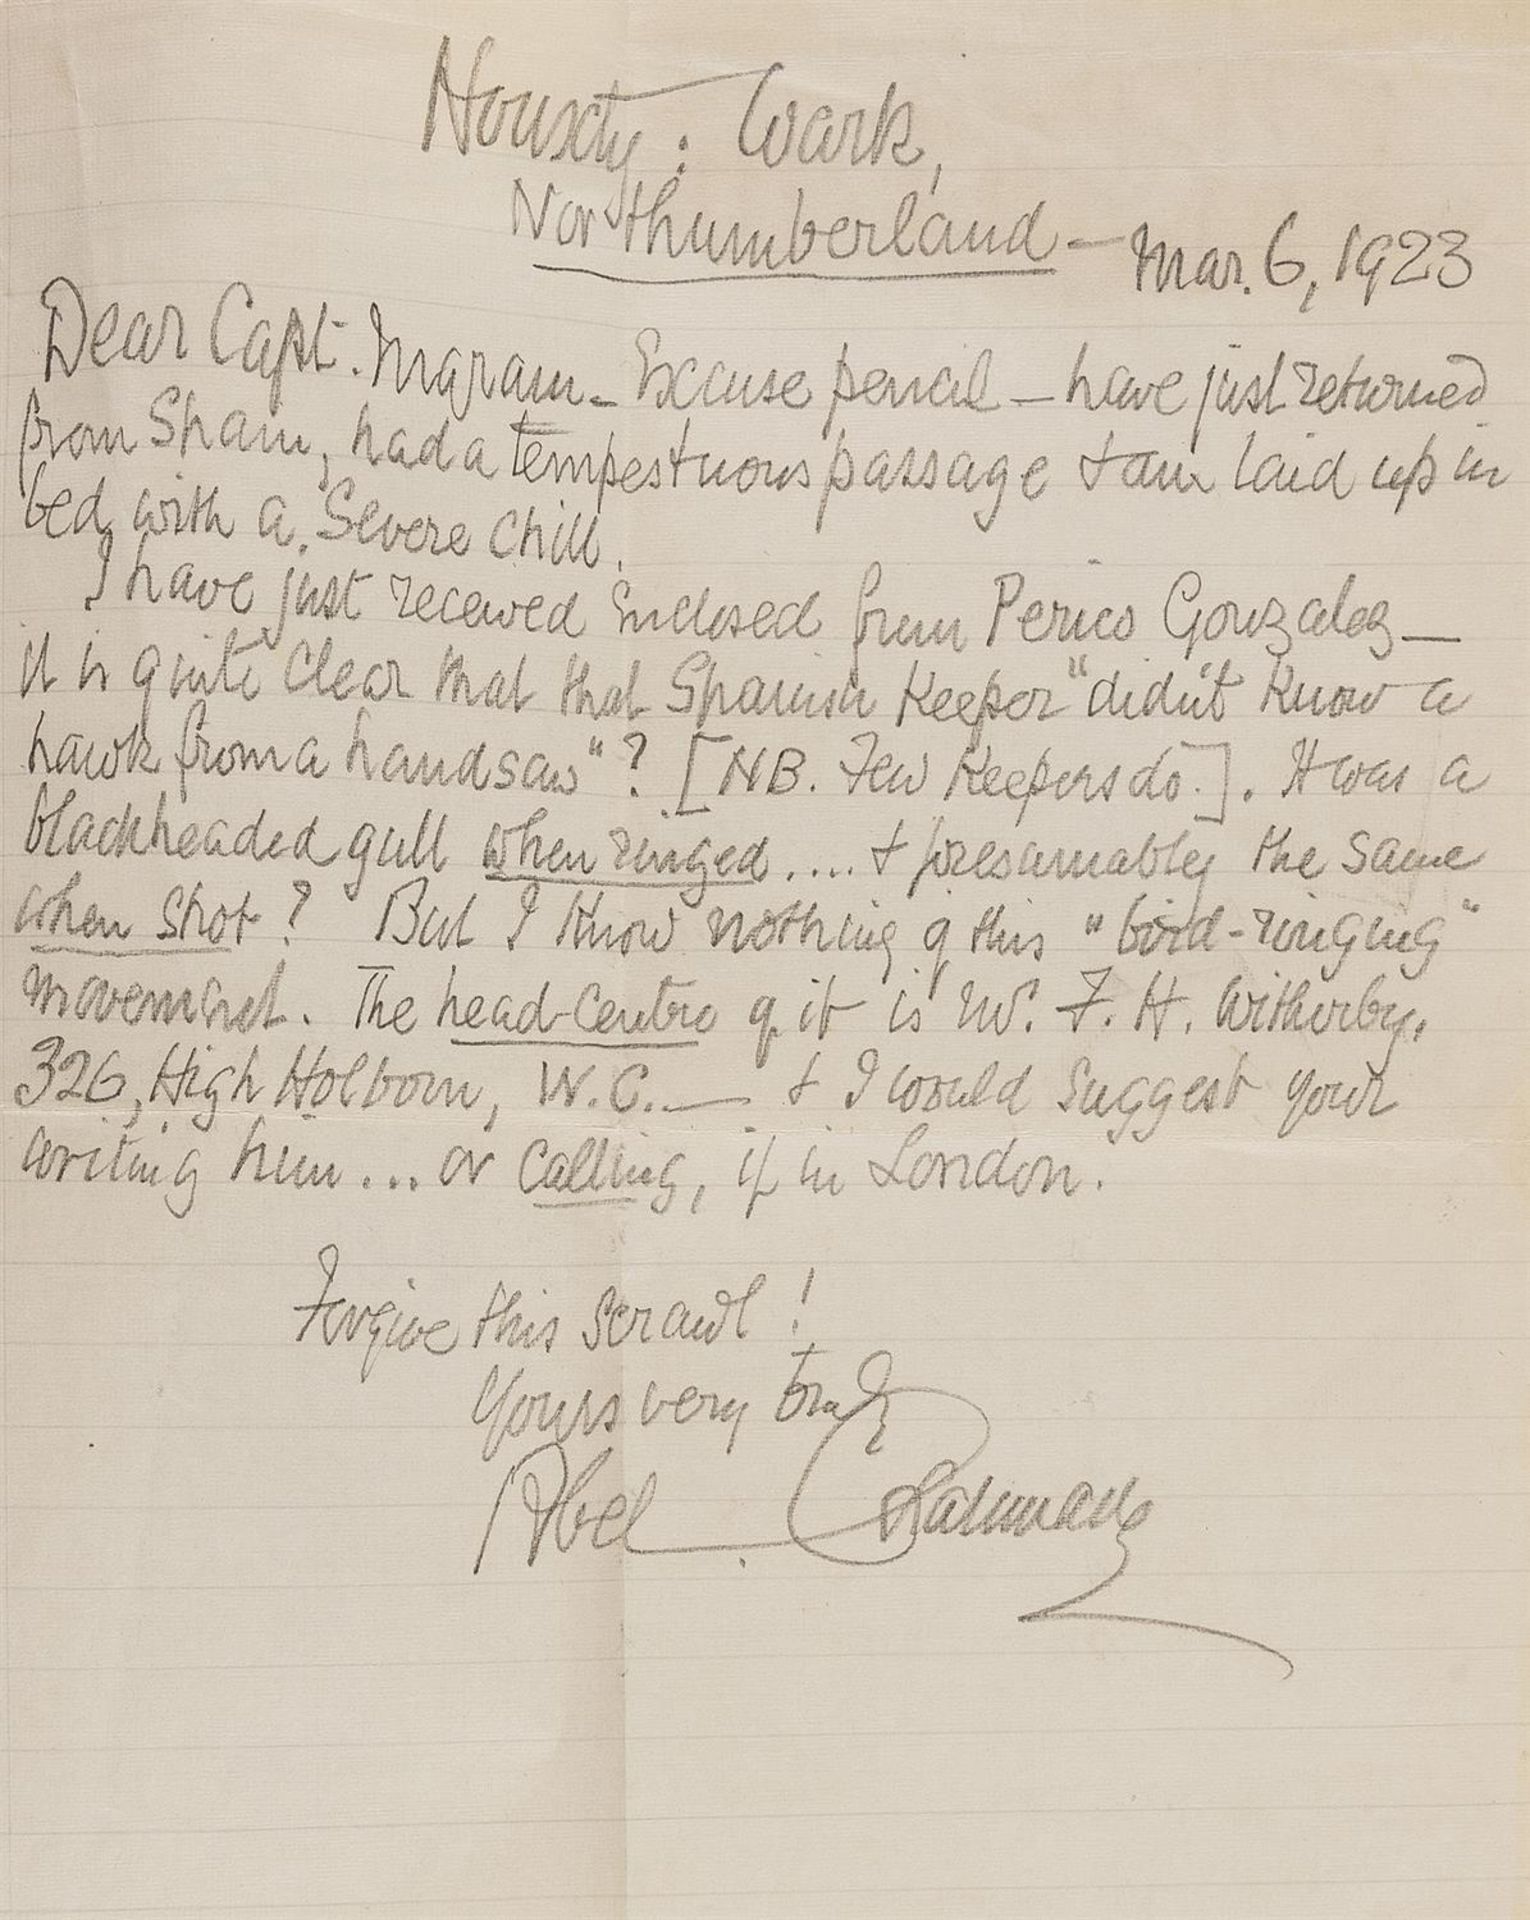 Houxty: Wark,
Northumberland — Mar. 6, 1923
Dear Capt. Ingram — Excuse pencil — have just returned
from Spain, had a tempestuous passage & am laid up in
bed with a severe chill.
I have just received enclosed from Perico Gonzalez —
it is quite clear that that Spanish Keeper "didn't know a
hawk from a handsaw"? [NB. Few Keepers do.]. It was a
blackheaded gull when ringed .... & presumably the same
when shot? But I know nothing of this "bird-ringing"
movement. The head-centre of it is Mr. F. H. Witherby,
326, High Holborn, W.C. — & I would suggest your
writing him ... or calling, if in London.
Forgive this scrawl!
Yours very truly
Abel Chapman